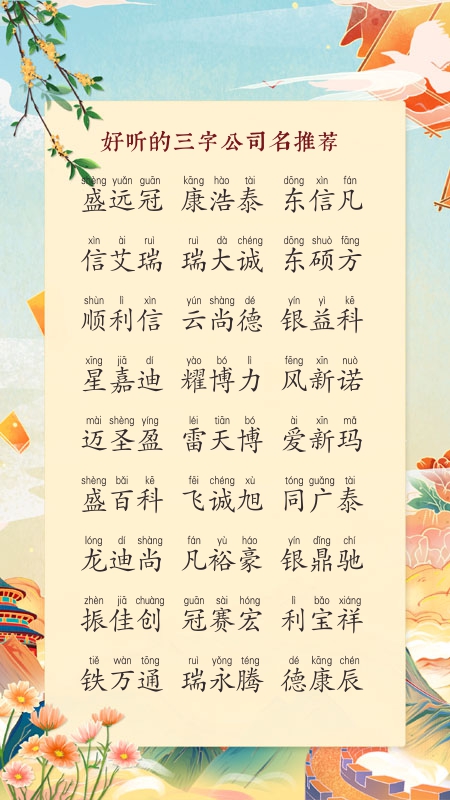 好听的三字公司名推荐
shèng yuǎn guān kāng hào tài dōng xìn fán
盛远冠 康浩泰 东信凡
xìn ài ruì ruì dà chéng dōng shuò fāng
信艾瑞 瑞大诚 东硕方
shùn lì xìn yún shàng dé yín yì kē
顺利信 云尚德 银益科
xīng jiā dí yào bó lì fēng xīn nuò
星嘉迪 耀博力 风新诺
mài shèng yíng léi tiān bó ài xīn mǎ
迈圣盈 雷天博 爱新玛
shèng bǎi kē fēi chéng xù tóng guǎng tài
盛百科 飞诚旭 同广泰
lóng dí shàng fán yù háo yín dǐng chí
龙迪尚 凡裕豪 银鼎驰
zhèn jiā chuàng guān sài hóng lì bǎo xiáng
振佳创 冠赛宏 利宝祥
tiě wàn tōng ruì yǒng téng dé kāng chén
铁万通 瑞永腾 德康辰